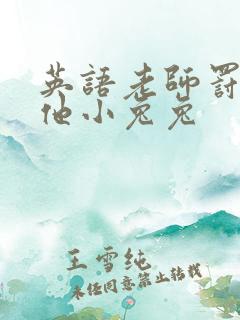 英語老師罰
他小兔兔
王雪纯
未经同意禁止转载